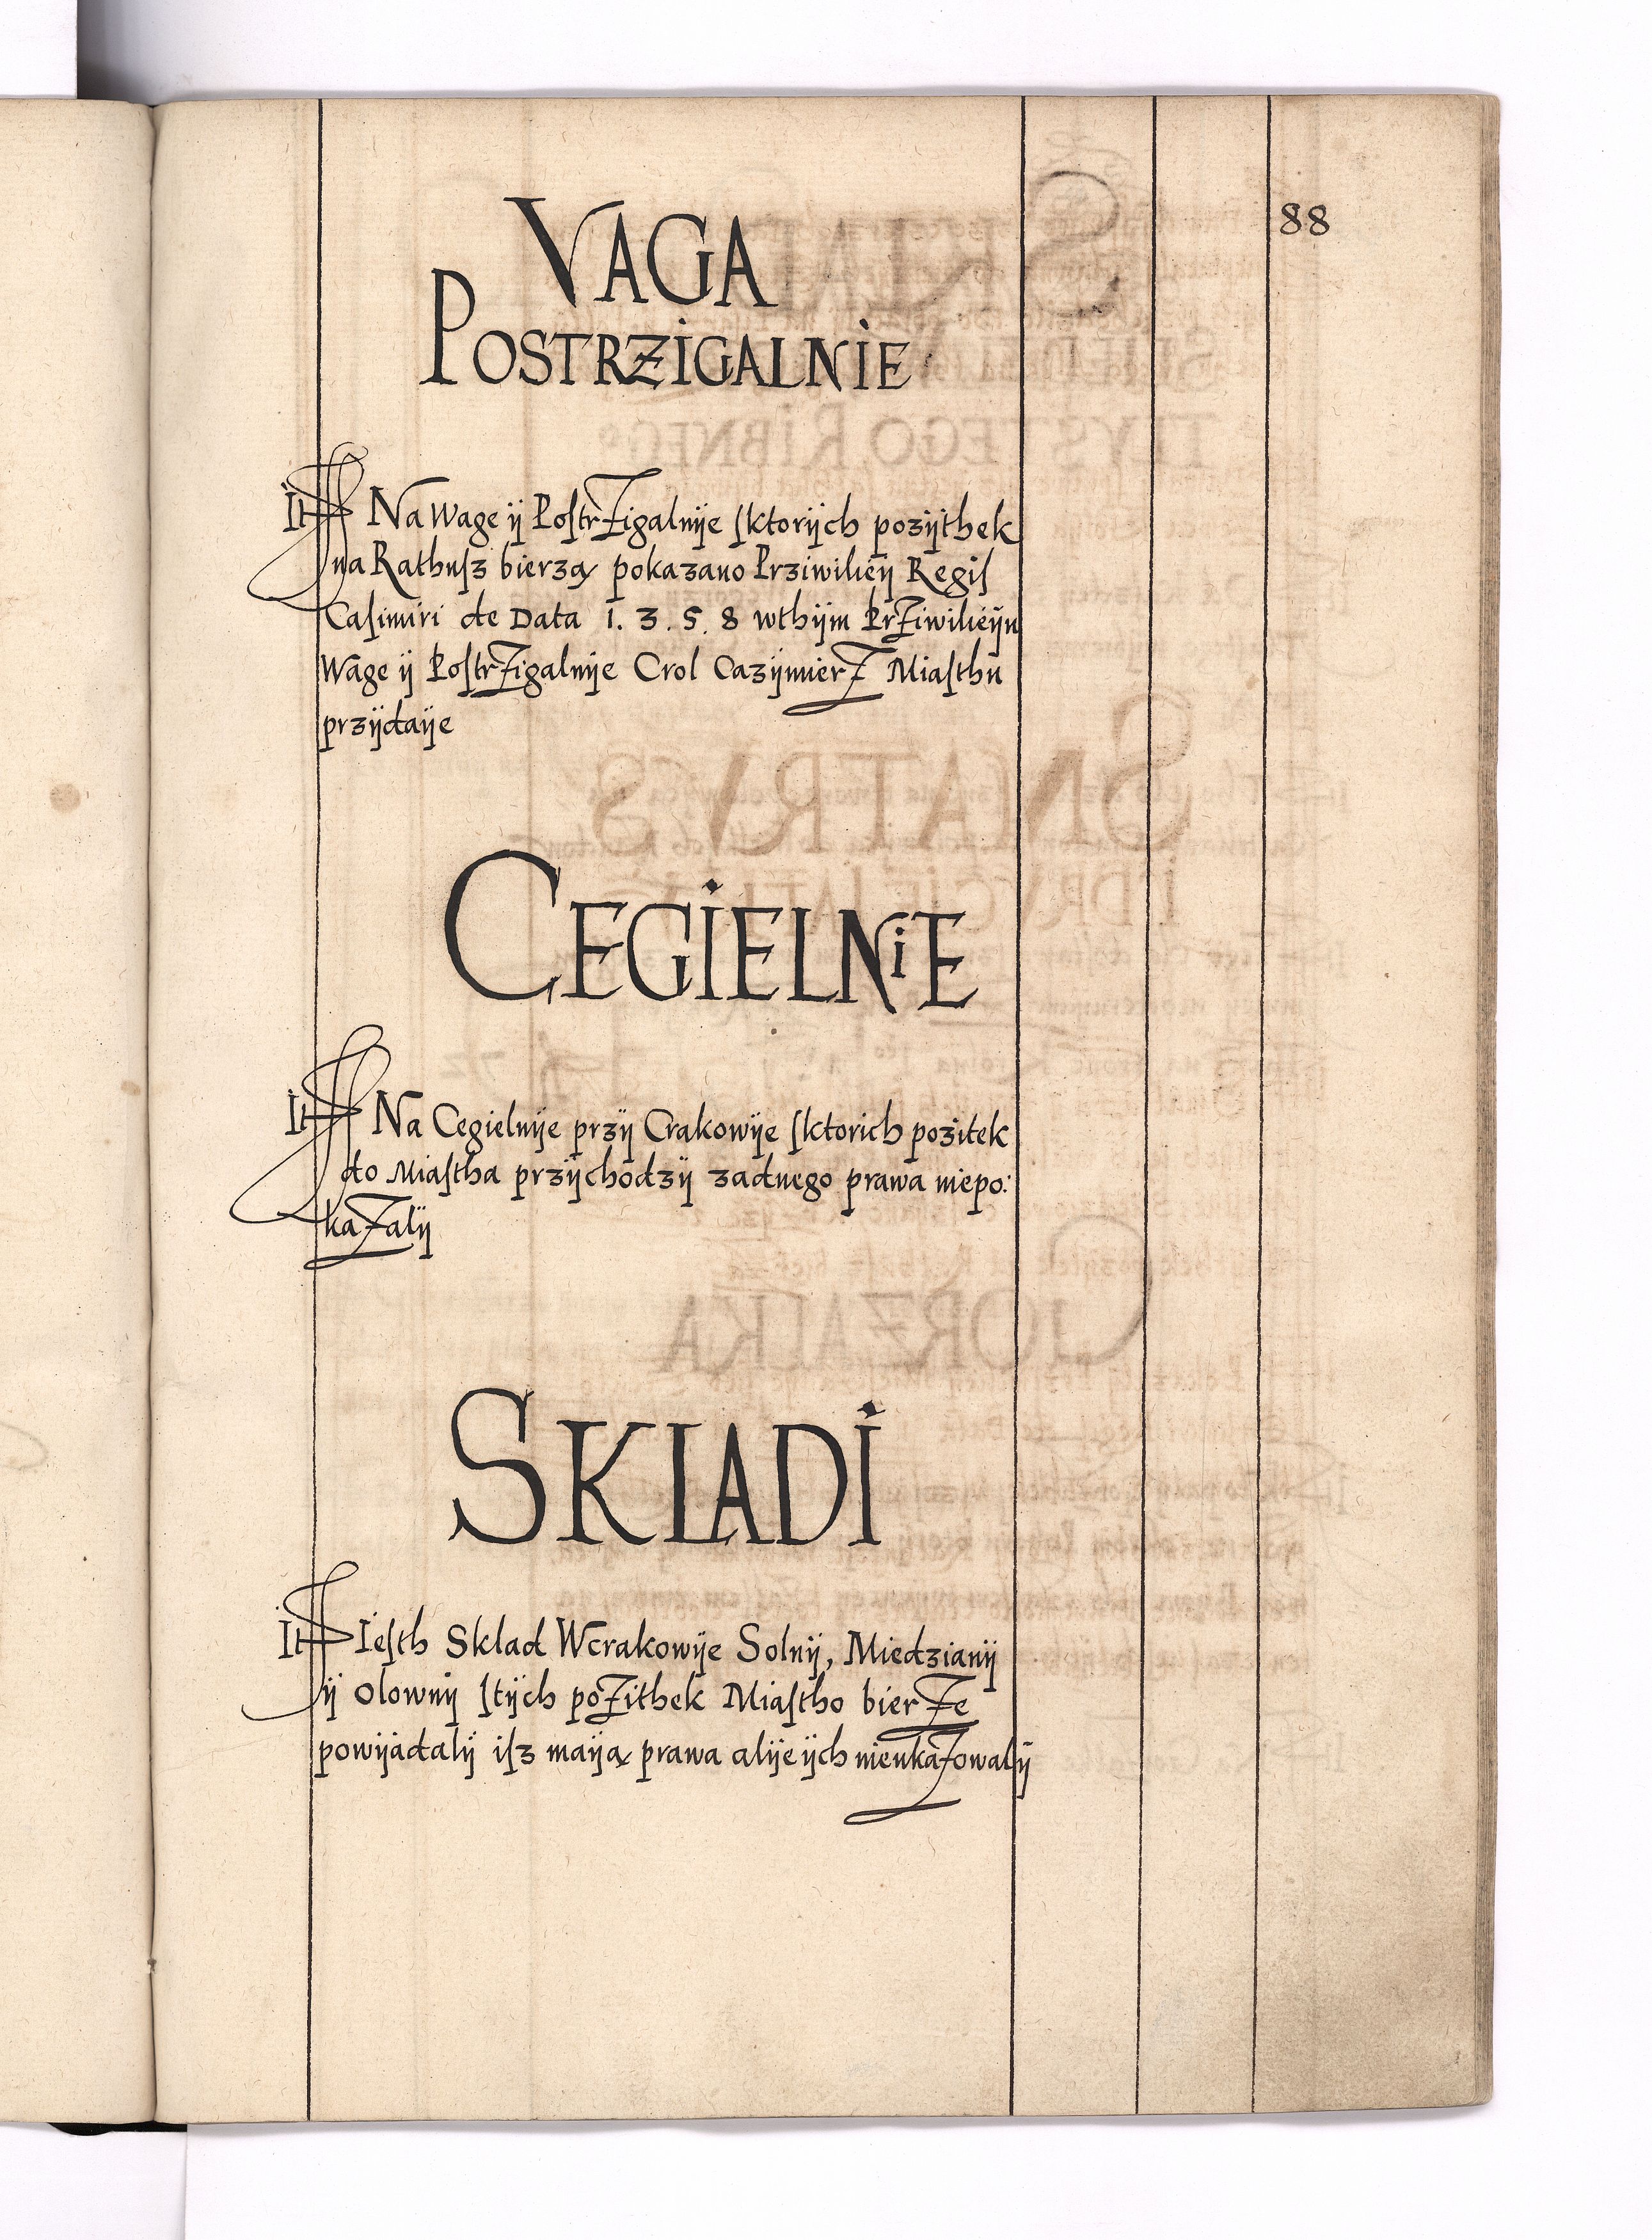 88
VAGA
POSTRZIGALNIE
It Na Wage ÿ PoſtrZigalnÿe ſktorÿch pozÿthek
na Rathuſz bierzą pokazano Prziwilieÿ Regiſ
Caſimiri de Data 1. 3. 5. 8 wthÿm PrZiwilieÿu
Wage ÿ PoſtrZigalnÿe Crol CazÿmierZ Miaſthu
przÿdaÿe
CEGIELNiE
It Na Cegielnÿe przÿ Crakowÿe ſktorich pozitek
do Miaſtha przÿchodzÿ zadnego prawa niepo:
kaZalÿ
SKLADI
It Ieſth Sklad Wcrakowÿe Solnÿ, Miedzianÿ
ÿ olownÿ ſtÿch poZithek Miaſtho bierZe
powÿadalÿ iſz maÿą prawa alÿe ÿch nieukaZowalÿ